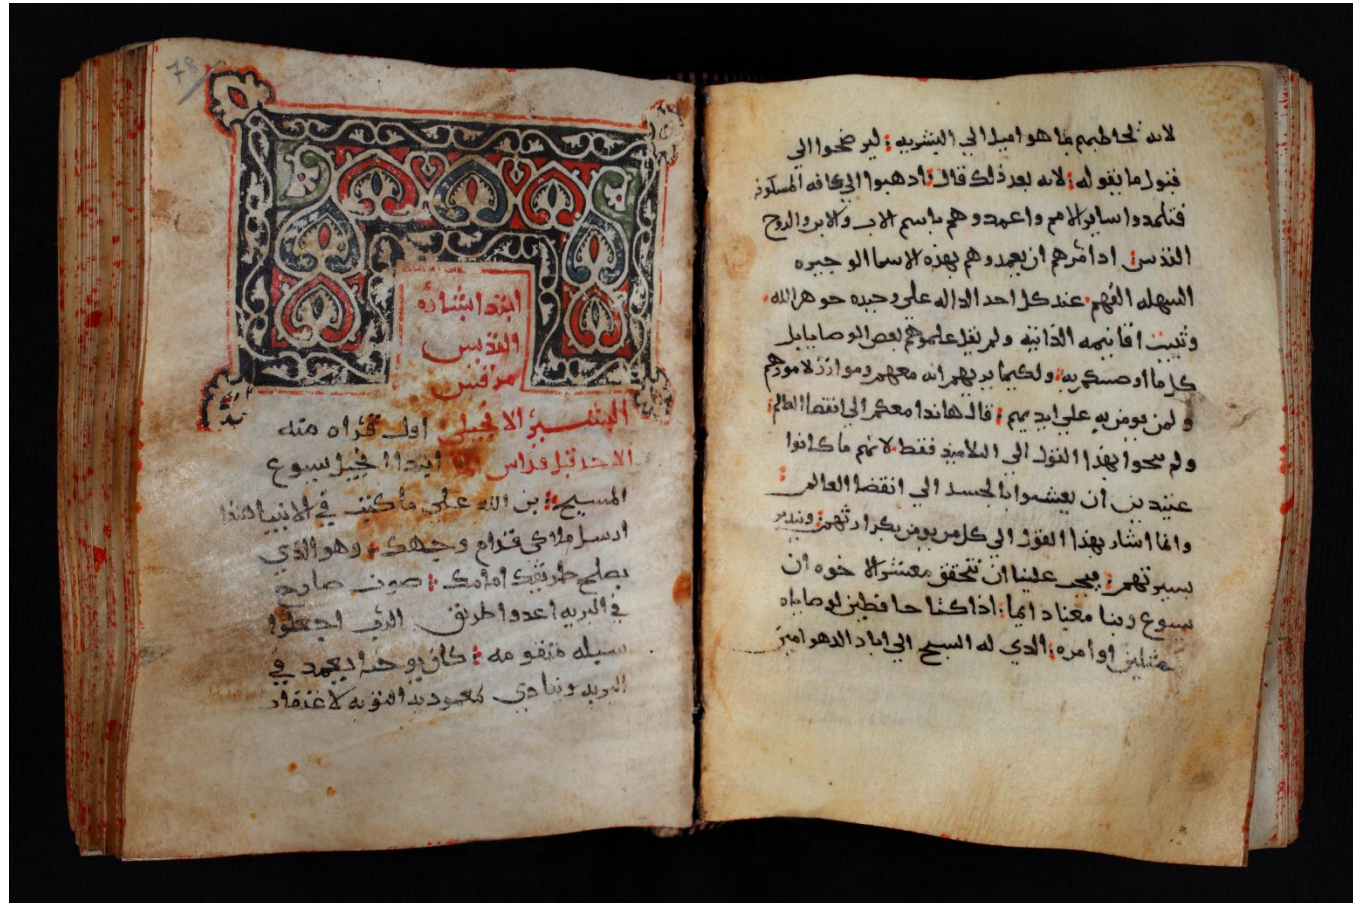 لانه لخاطبهم بما هو اميل الي البشريه: ليرضخوا الي
قبول ما يقوله: لانه بعد ذلك قال: ادهبوا الي كافه المسكونه
فتلمدوا ساير الامم واعمدوهم باسم الاب والابن والروح
القدس: اد امرهم ان يعمدوهم بهده الاسما الوجيزه
السهله الفهم عند كل احد الداله علي وحيده جوهر الله
وتثبيت اقانيمه الداتيه ولم يقل علموهم بعض الوصايا بل
كل ما اوصيتكم به: ولكيما يريهم انه معهم وموازر لامورهم
ولمن يومن به علي ايديهم: قال هاندا معكم الي انقضا العالم:
ولم ينحوا بهدا القول الي التلاميد فقط لانهم ما كانوا
عتيدين ان يعيشوا بالجسد الي انقضا العالم:
وانما اشار بهدا القول الي كل من يومن بكرازتهم: ويدير
سيرتهم: فيجب علينا ان نتحقق معشر الاخوه ان
يسوع ربنا معنا دايما: ادا كنا حافظين لوصاياه
ممثلين اوامره: الدي له السبح الي اباد الدهور امين
78
ابتدا البشاره
القدس
مرقس
البشير الانجيلي اول قراه منه
الاحد قبل ابتدا انجيل يسوع
المسيح: بن الله علي ما كتب في الانبيا هندا
ارسل ملاكي قدام وجهك: وهو الدي
يصلح طريقك امامك: صوت صارخ
في البريه اعدوا طريق الرب اجعلوا
سبيله متقومه: كان يوحنا يعمد في
البريه وينادي بمعموديه التوبه لاغتفار